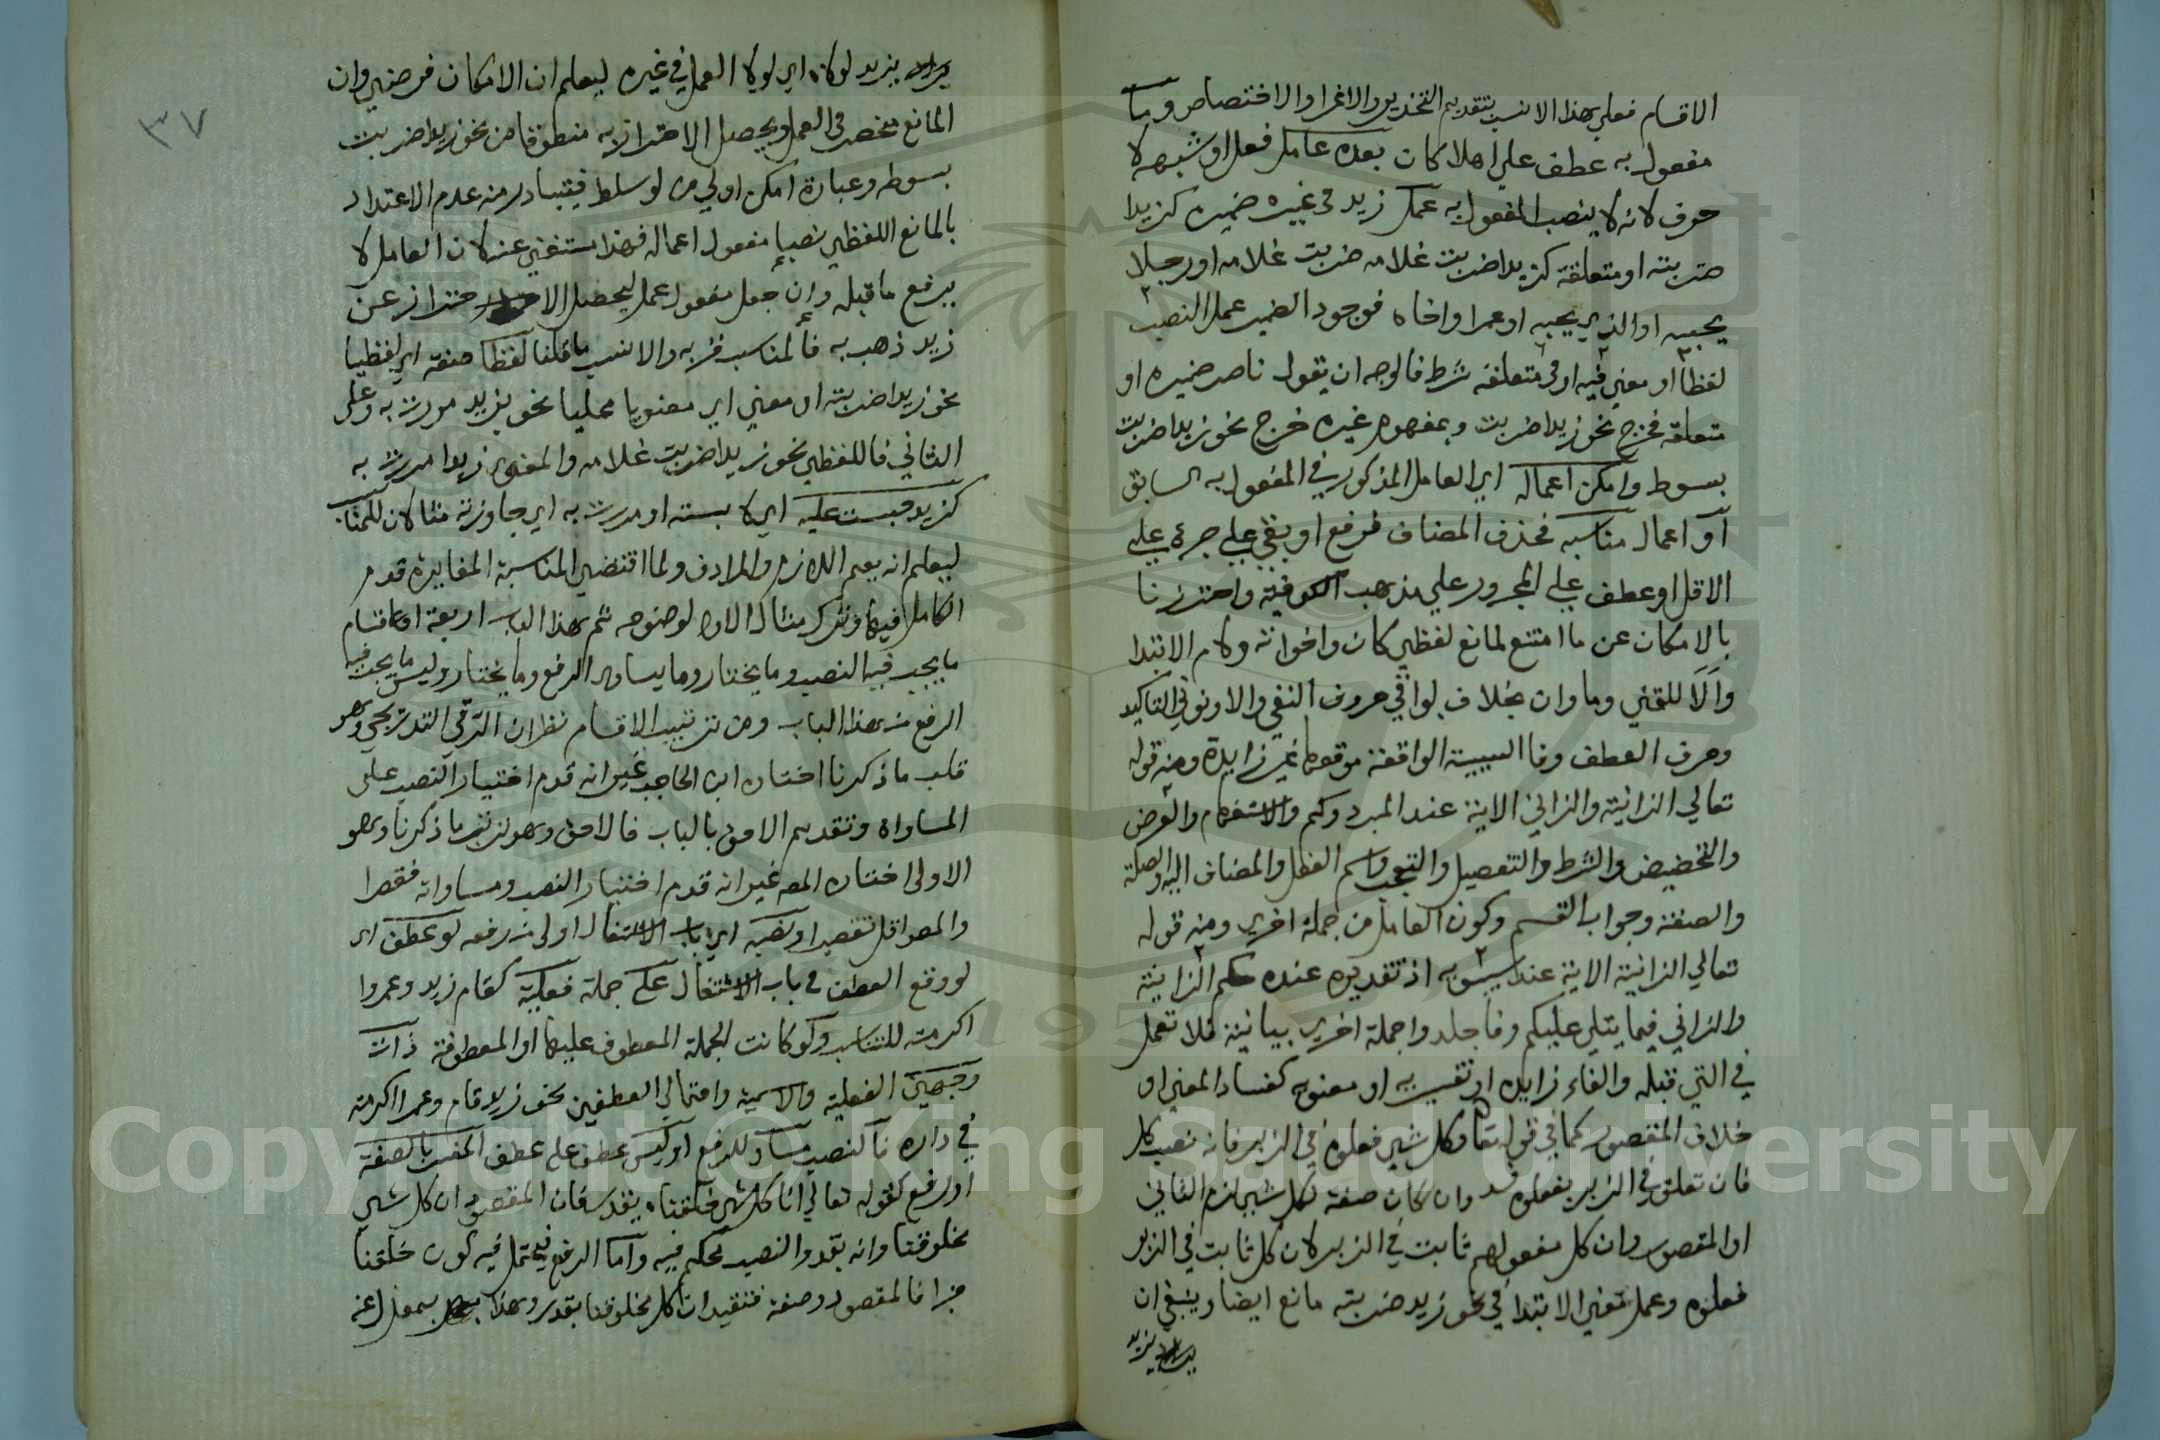 الاقسام فعلي هذا الانسب بتقديم التحذير والاغرا والاختصاص وما
مفعول به عطف علي اهلا كان بعده عامل فعل او شبهه لا
حرف لانه لا ينصب المفعول به عمل زيد في غيره ضميره كزيدا
ضربته او متعلقة كزيدا ضربت غلامه ضربت غلامه او رجلا
يحبه او الذي يحبه او عمرا واخاه فوجود الضمير عمل النصب
لفظا او معني فيه او في متعلقه شرط فالوجه ان يقول ناصب ضميره او
متعلقه فخرج نحو زيدا ضربت وبمفهوم غيره خرج نحو زيدا ضربت
بسوط وامكن اعماله اي العامل المذكور في المفعول به السابق
او اعمال مناسبه فحذف المضاف فرفع او بقي علي جره علي
الاقل او عطف علي المجرور علي مذهب الكوفية واحترزنا
بالامكان عن ما امتنع لمانع لفظي كان واخواته ولام الابتدا
والا للتمني وما وان بخلاف بواقي حروف النفي والا ونوني التاكيد
وحرف العطف وفا السببية الواقعة موقعها غير زايدة ومنه قوله
تعالي الزانية والزاني الاية عند المبرد وكم والاستفهام والعرض
والتخضيض والشرط والتفصيل والتعجب واسم الفعل والمضاف اليه والصلة
والصفة وجواب القسم وكون العامل من جملة اخري ومنه قوله
تعالي الزانية الاية عند سيبويه اذ تقديره عنده حكم الزانية
والزاني فيما يتلي عليكم وفاجلدوا جملة اخري بيانية فلا تعمل
في التي قبله والفاء زايده او تفسيريه او معنوي كفساد المعني او
خلاف المقصود كما في قوله تعا وكل شيء فعلوه في الزبر فانه نصب كل
فان تعلق في الزبر بفعلوه فسد وان كان صفة لكل شي لزم الثاني
او المقصود ان كل مفعولهم ثابت في الزبر لان كل ثابت في الزبر
فعلوه وعمل معني الابتدا في نحو زيد ضربته مانع ايضا وينبغي ان
يزيد
يزيد لولاه اي لولا العمل في غيره ليعلم ان الامكان فرضي وان
المانع منحصر في العمل ويحصل الاحتراز به منطوقا من نحو زيدا ضربت
بسوطه وعبارة امكن اولي من لو سلط فيتبادر منه عدم الاعتداد
بالمانع اللفظي نصبا مفعول اعماله فهذا مستغني عنه لان العامل لا
يرفع ما قبله وان جعل مفعول عمل ليحصل الاحتراز عن
زيد ذهب به فالمناسب قربه والانسب ما قلنا لفظا صفة اي لفظيا
نحو زيدا ضربته او معني اي معنويا محليا نحو بزيد مررت به وعلي
الثاني فاللفظي نحو زيدا ضربت غلامه والمعنوي زيدا مررت به
كزيد حبست عليه اي لابسته او مررت به اي جاوزته مثالان للمناسب
ليعلم انه يعم اللازم والمرادف ولما اقتضي المناسبة المغايرة قدم
الكامل فيها وترك مثال الاول لوضوحه ثم هذا الباب اربعة اقسام
ما يجب فيه النصب وما يختار وما يساوي الرفع وما يختار وليس ما يجب فيه
الرفع من هذا الباب ومن ترتيب الاقسام نظران الترقي التدريجي وهو
قلب ما ذكرنا اختاره ابن الحاجب غير انه قدم اختيار النصب علي
المساواة وتقديم الاحق بالباب فالاحق وهو ترتيب ما ذكرنا وهو
الاولي اختاره المص غير انه قدم اختيار النصب ومساواته فقصرا
والمص اقل تقصيرا ونصبه اي باب الاشتغال اولي من رفعه لو عطف اي
لو وقع العطف في باب الاشتغال علي جملة فعلية كقام زيد وعمروا
اكرمته للتناسب ولو كانت الجملة المعطوف عليها او المعطوفة ذات
وجهين الفعلية والاسمية واحتمال العطفين نحو زيد قام وعمرا اكرمته
في داره فالنصب مساو للرفع او ليس عطف علي عطف المفسر بالصفة
او رفع كقوله تعالي انا كل شيء خلقناه بقدر فان المقصود ان كل شيء
مخلوقنا وانه بقدر والنصب محكم فيه واما الرفع فيحتمل فيه كون خلقنا
خبرا فالمقصود وصفة فتقيد ان كل مخلوقنا بقدر وهذا بمعزل عنه
٣٧
Copyright © King Saud University